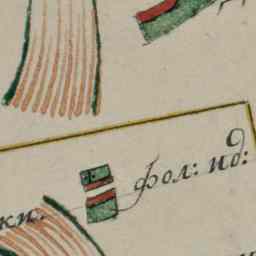 фол: ид:
ки.